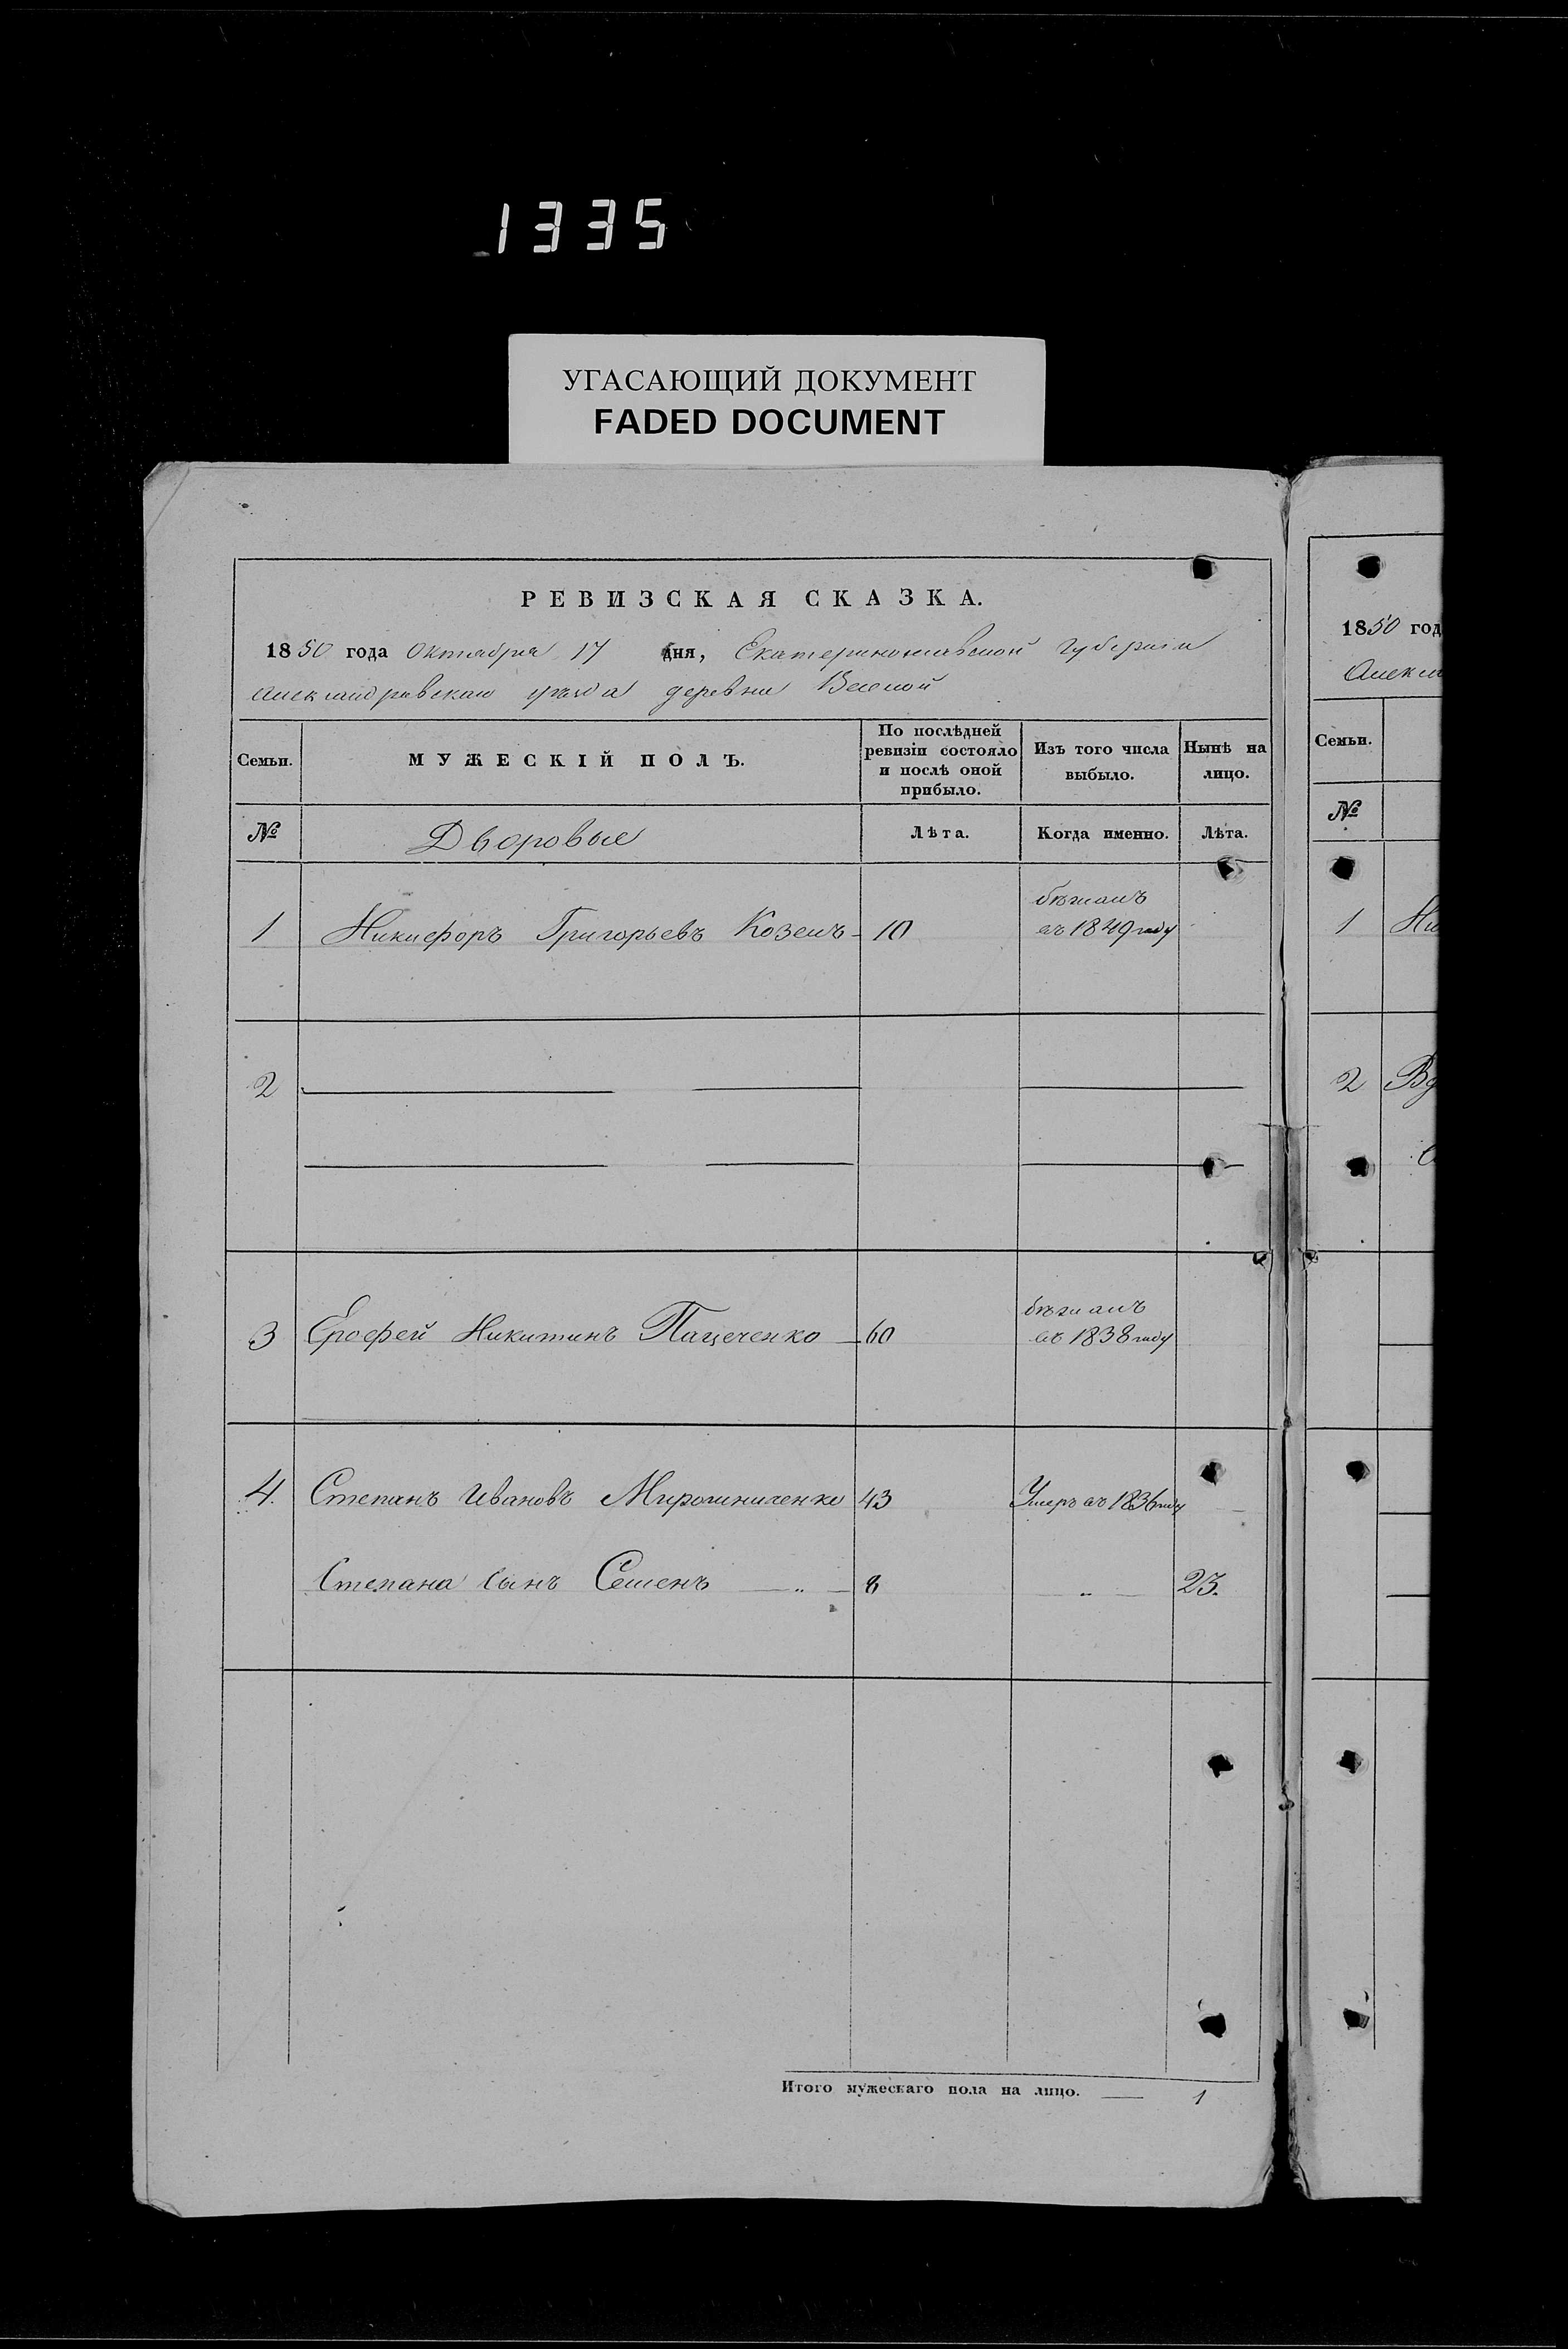 1335
УГАСАЮЩИЙ ДОКУМЕНТ
FADED DOCUMENT
РЕВИЗСКАЯ СКАЗКА.
1850 года Октября 17 дня, Екатеринославской Губернии
Александровскаго уѣзда деревни
Семьи. МУЖЕСКІЙ ПОЛЪ. По послѣдней ревизіи состояло и послѣ оной прибыло. Изъ того числа выбыло. Нынѣ на лицо.
№ Дворовые Лѣта. Когда именно. Лѣта.
бѣжалъ
1 Никифоръ Григорьевъ Козелъ 10 въ 1849 году
2
бѣжалъ
3 Ерофей Никитинъ Пацеченко 60 въ 1838 году
4. Степанъ Ивановъ Мирошниченко 43 Умеръ въ 1836 году
Степана сынъ Семенъ — „ — 8 — „ — 23.
Итого мужескаго пола на лицо. — 1
1850 год
Алекса
Семьи.
№
1 Ни
2 Вд